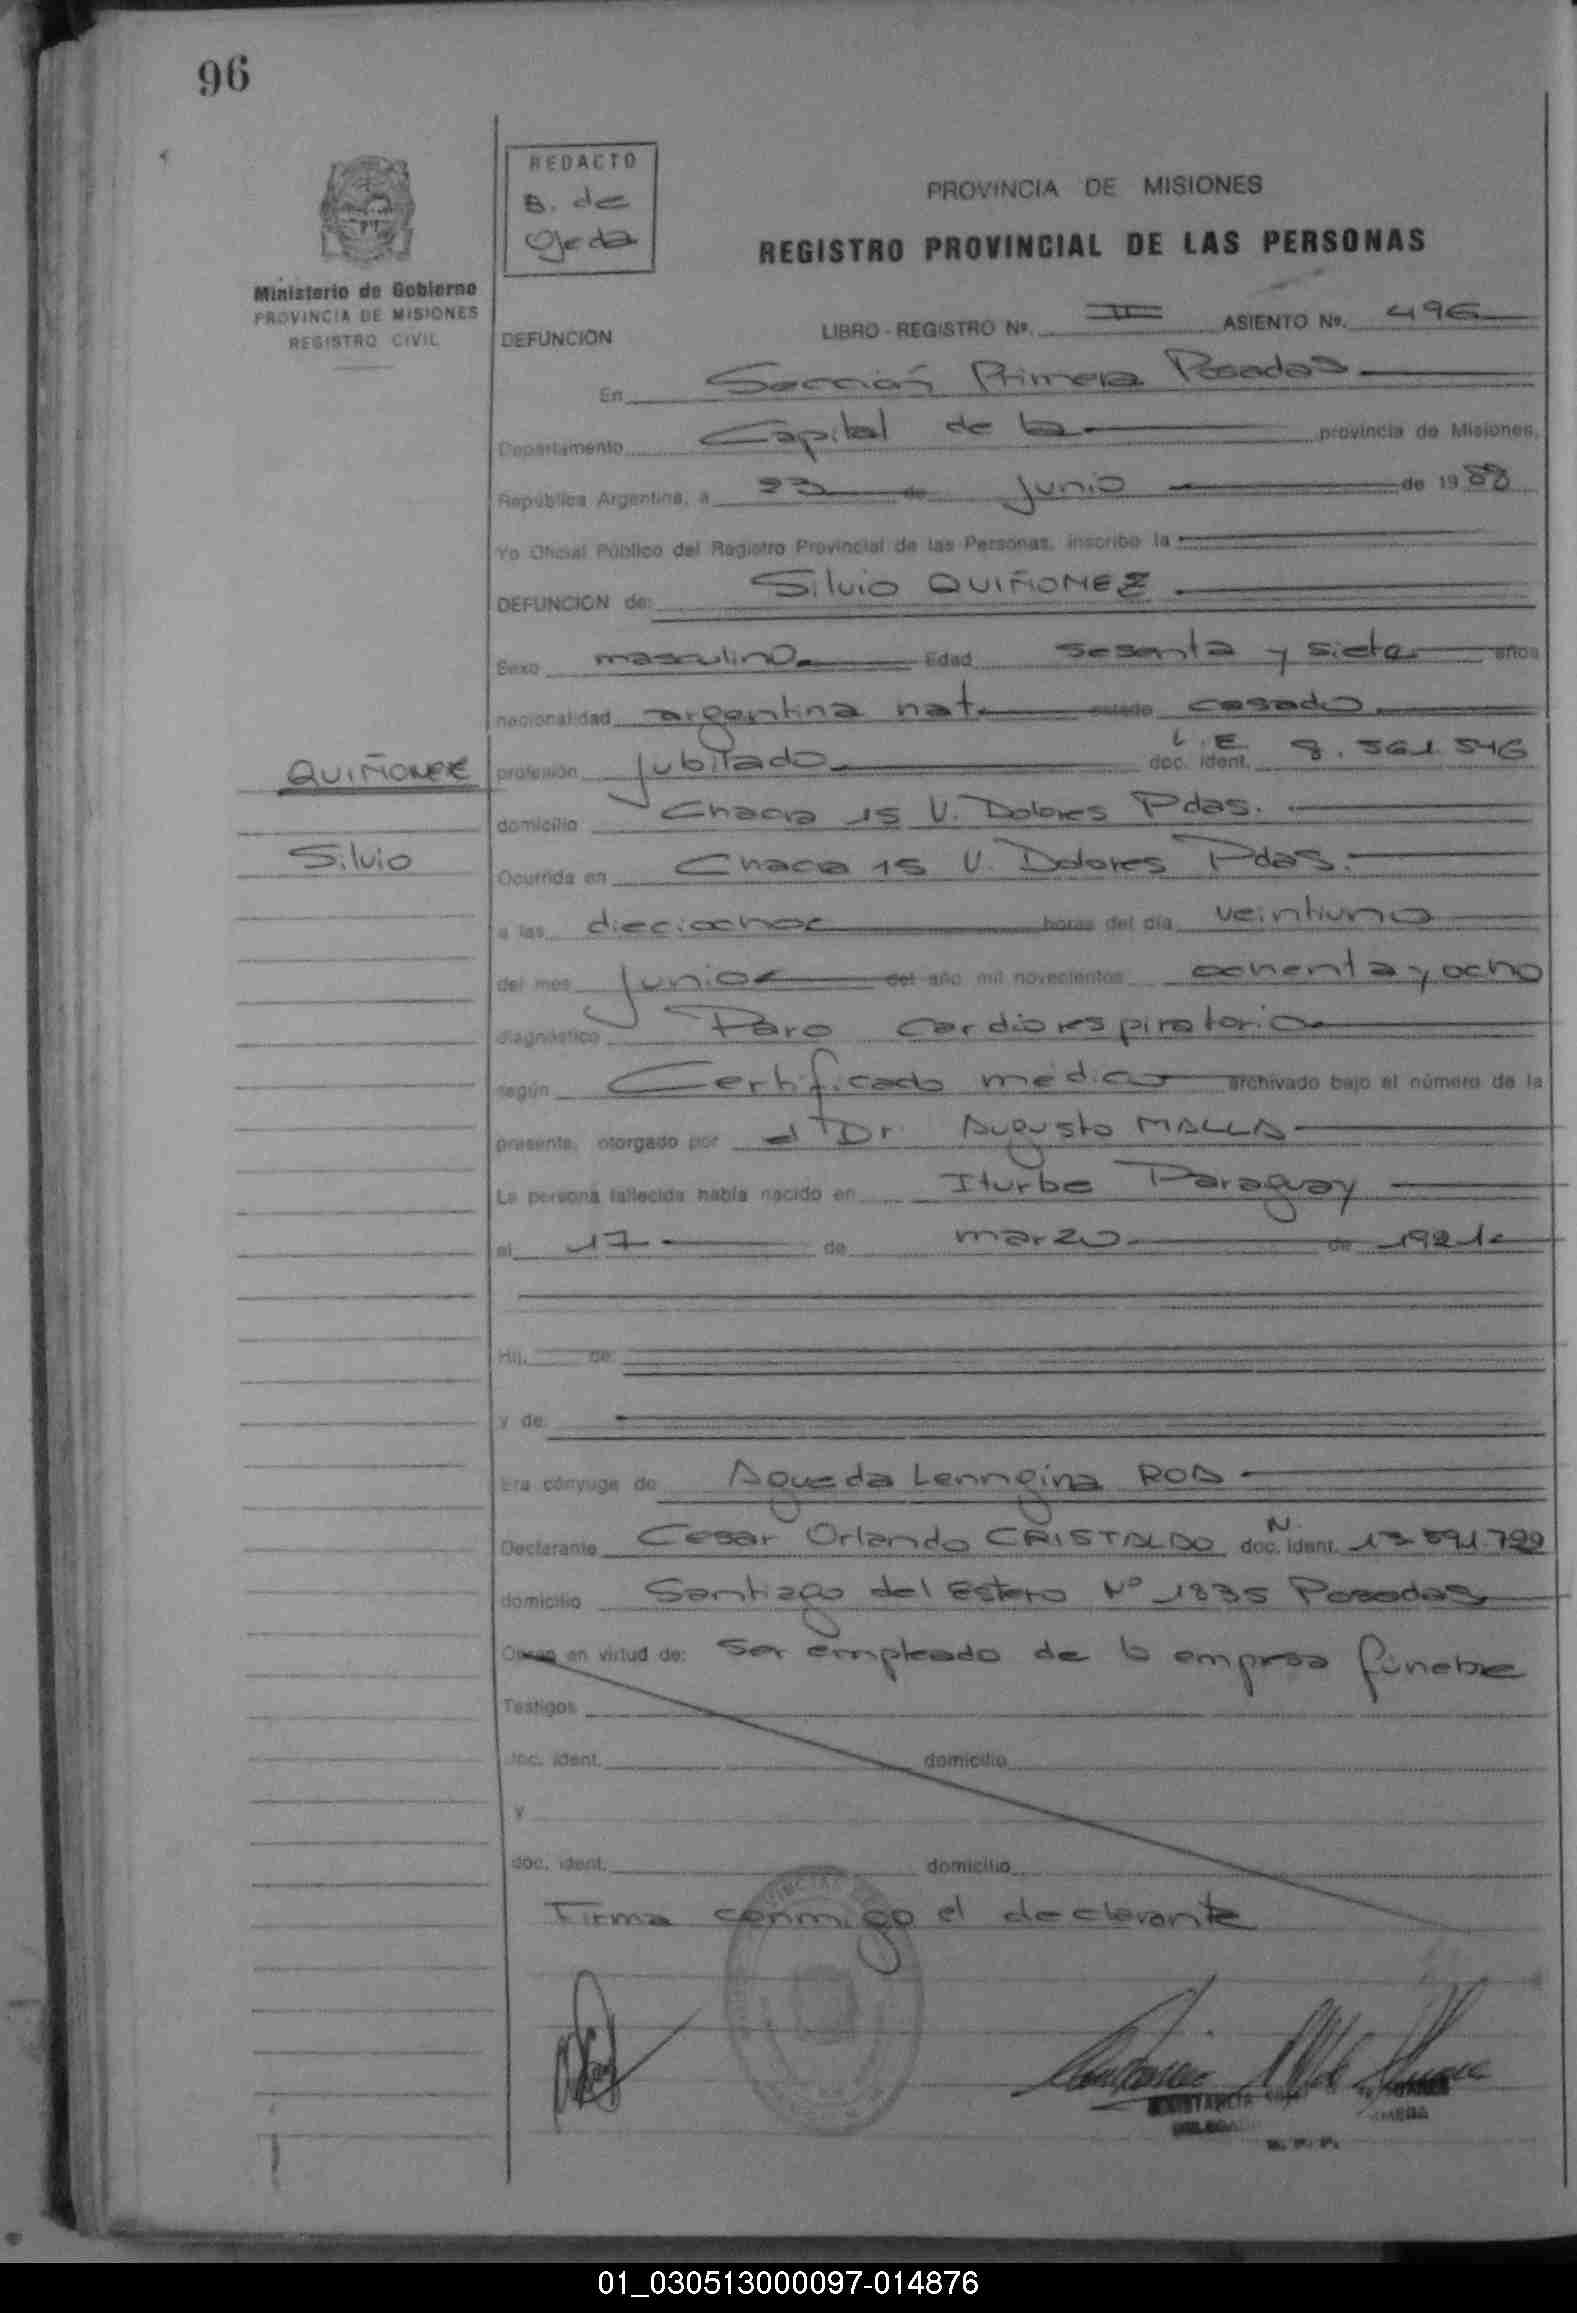 96
REDACTO
B. de
Ojeda
Ministerio de Gobierno
PROVINCIA DE MISIONES
REGISTRO CIVIL
PROVINCIA DE MISIONES
REGISTRO PROVINCIAL DE LAS PERSONAS
DEFUNCION LIBRO - REGISTRO Nº. II ASIENTO Nº. 496
En Sección Primera Posadas
Departamento Capital de la provincia de Misiones,
República Argentina, a 23 de junio de 1988
Yo Oficial Público del Registro Provincial de las Personas, inscribo la
DEFUNCION de: Silvio QUIÑONEZ
Sexo masculino Edad sesenta y siete años
nacionalidad argentina nat. estado casado
QUIÑONEZ
Silvio
profesión jubilado L.E. doc. ident. 8.561.546
domicilio Chacra 15 V. Dolores Pdas.
Ocurrida en Chacra 15 V. Dolores Pdas.
a las dieciocho horas del día veintiuno
del mes junio del año mil novecientos ochenta y ocho
diagnóstico Paro cardiorespiratorio
según Certificado médico archivado bajo el número de la
presente, otorgado por el Dr. Augusto MALLA
La persona fallecida había nacido en Iturbe Paraguay
el 17 de marzo de 1921
Hij. de:
y de:
Era cónyuge de Agueda ROA
Declarante Cesar Orlando CRISTALDO doc. ident. N.
domicilio Santiago del Estero Nº 1835 Posadas
Obran en virtud de: Ser empleado de la empresa fúnebre
Testigos
doc. ident. domicilio
y
doc. ident. domicilio
Firma conmigo el declarante
01_030513000097-014876